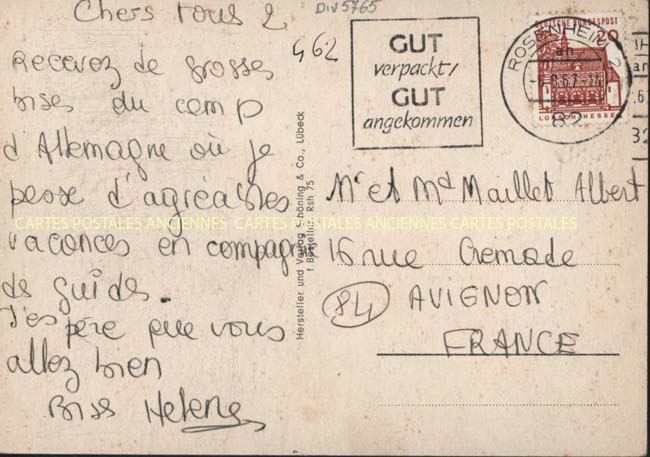 Chers tous 2
DIV5765
462
Recevez de grosses
bises du camp
d'Allemagne où je
passe d'agréables
vacances en compagnie
de guides.
J'espère que vous
allez bien
Bises Helene
GUT
verpackt,
GUT
angekommen
ROSENHEIM 2
DEUTSCHE BUNDESPOST
20
LORSCH/HESSEN
82
Hersteller und Verlag Schöning & Co., Lübeck
Rsh 75
Mr et Md Maillet Albert
16 rue Cremade
84 AVIGNON
FRANCE
CARTES POSTALES ANCIENNES CARTES POSTALES ANCIENNES CARTES POSTALES